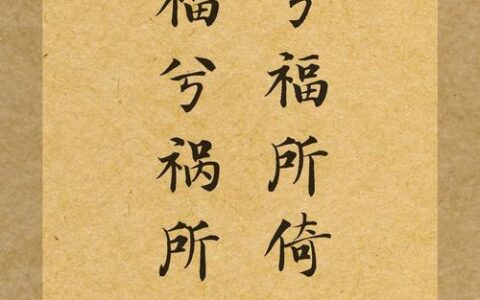 兮福所倚
福兮祸所